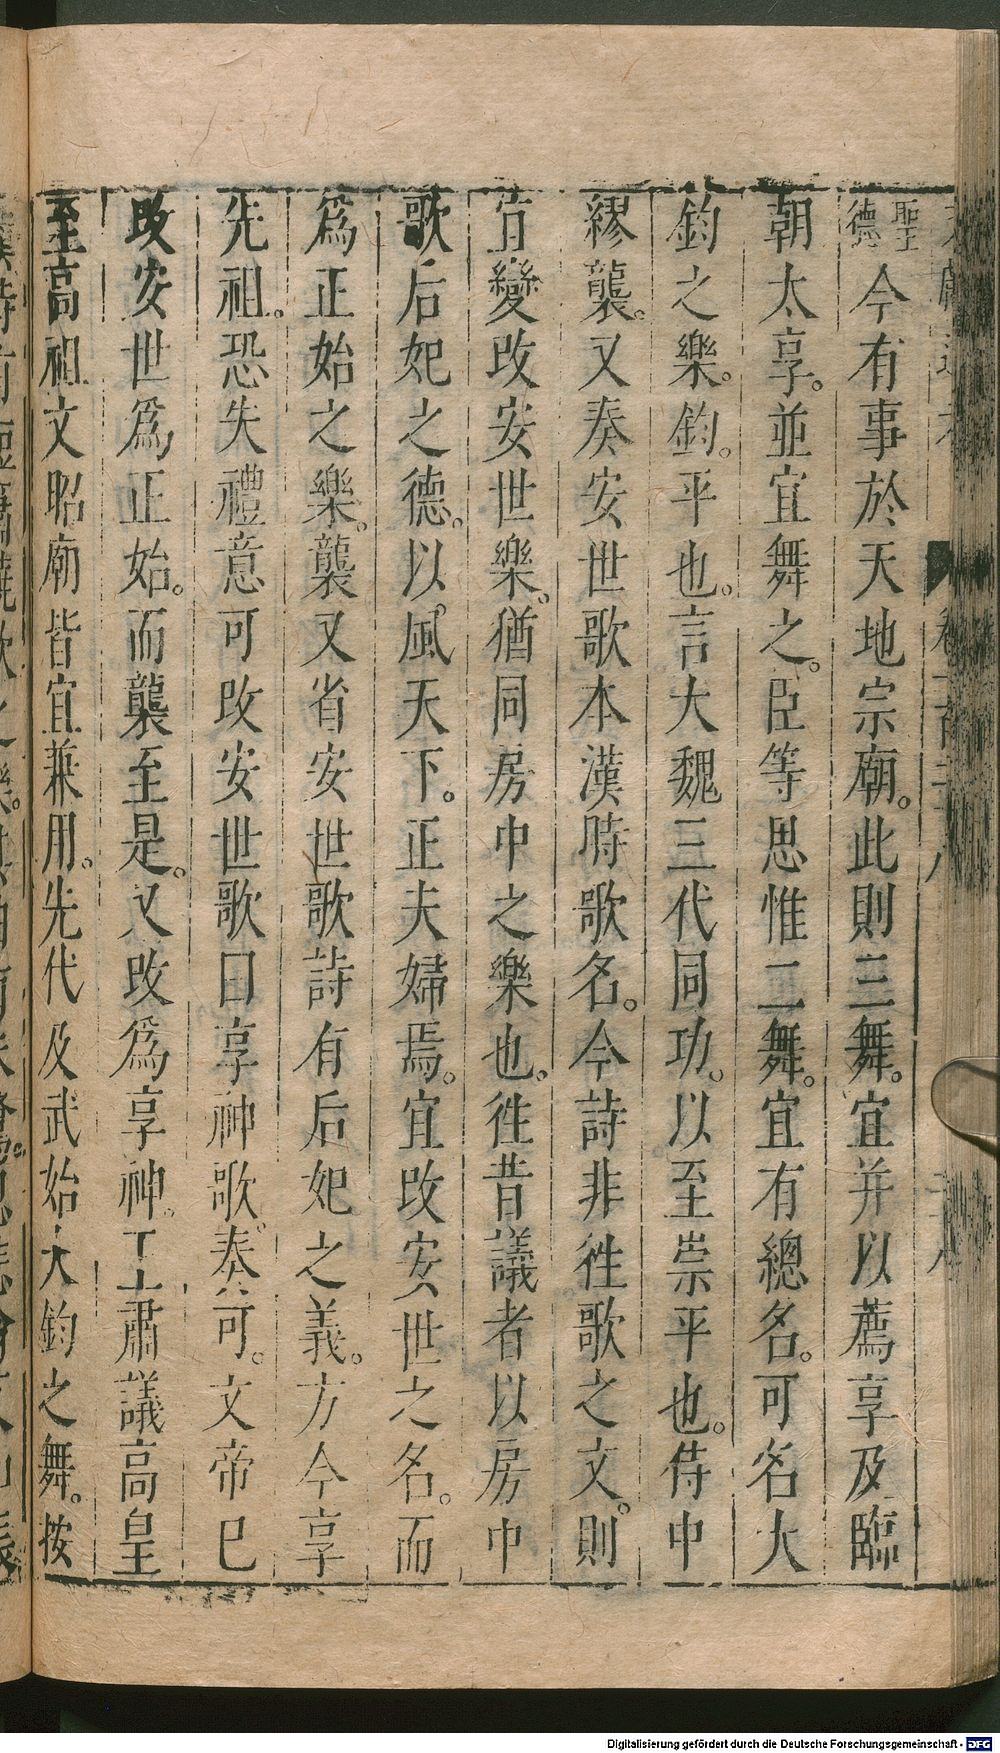 聖德今有事於天地宗廟。此則三舞。宜并以薦享及臨
朝太享。並宜舞之。臣等思惟二舞。宜有總名。可名大
鈞之樂。鈞。平也。言大魏三代同功。以至崇平也。侍中
繆襲。又奏安世歌本漢時歌名。今詩非徃歌之文。則
宜變改安世樂。猶同房中之樂也。徃昔議者以房中
歌后妃之德。以風天下。正夫婦焉。宜改安世之名。而
爲正始之樂。襲又省安世歌詩有后妃之義。方今享
先祖。恐失禮意可改安世歌曰享神歌。奏可。文帝巳
改安世爲正始。而襲至是。又改爲享神。王肅議高皇
至高祖文昭廟皆宜兼用。先代及武始大鈞之舞。按
Digitalisierung gefördert durch die Deutsche Forschungsgemeinschaft - DFG